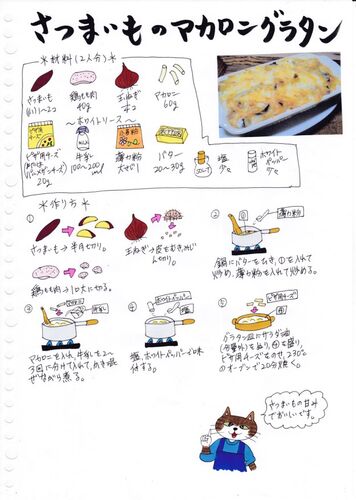 さつまいものマカロングラタン
*材料(2人分)*
さつまいも
鶏もも肉
玉ねぎ
マカロン
60g
〜ホワイトソース〜
ピザ用チーズ
20g
牛乳
100〜200
薄力粉
バター
20〜30g
塩
少々
ホワイト
ペッパー
少々
*作り方*
①
さつまいも→半月切り。
玉ねぎ→皮をむきみじ
ん切り。
鶏もも肉→1口大に切る。
②
薄力粉
鍋にバターをしき、①を入れて
炒め、薄力粉を入れて炒める。
③
牛乳
マカロニを入れ、牛乳を2〜
3回に分けて入れて、かき混
ぜながら煮る。
④
ホワイトペッパー
塩、ホワイトペッパーで味
付する。
⑤
ピザ用チーズ
グラタン皿にサラダ油
(分量外)をぬり、④を盛り、
ピザ用チーズをのせ、230℃
のオーブンで20分焼く。
さつまいもの甘み
でおいしいです。